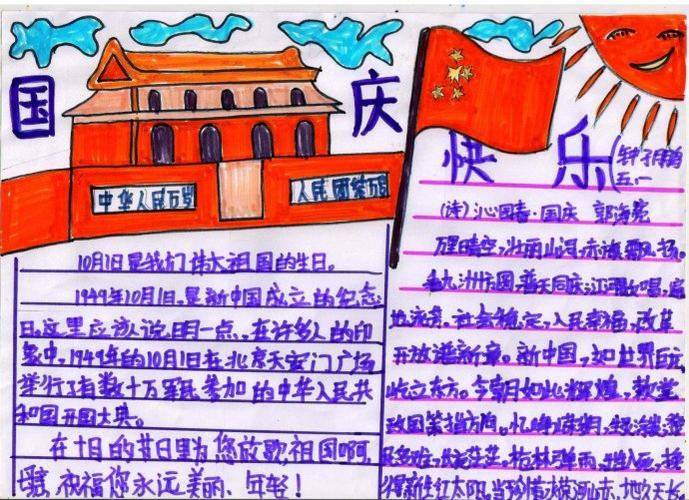 国 庆
快 乐
中华人民万岁
人民团结万岁
10月1日是我们伟大祖国的生日。
1949年10月1日,是新中国成立的纪念
日。这里应该说明一点,在许多人的印
象中,1949年的10月1日在北京天安门广场
举行了有数十万军民参加的中华人民共
和国开国大典。
在十月的昔日里为您放歌祖国啊,
祝福您永远美丽、年轻!
五、一
(诗)沁园春·国庆 郭海
万里晴空,壮丽山河,赤旗飘扬。
九洲方圆,普天同庆,江
社会稳定,人民幸福,改革
开放谱新章。新中国,如世界巨
屹立东方。今朝如此辉煌,
政国策指方向。忆
枪林弹雨,
得新生红太阳。当珍惜, 地久天长